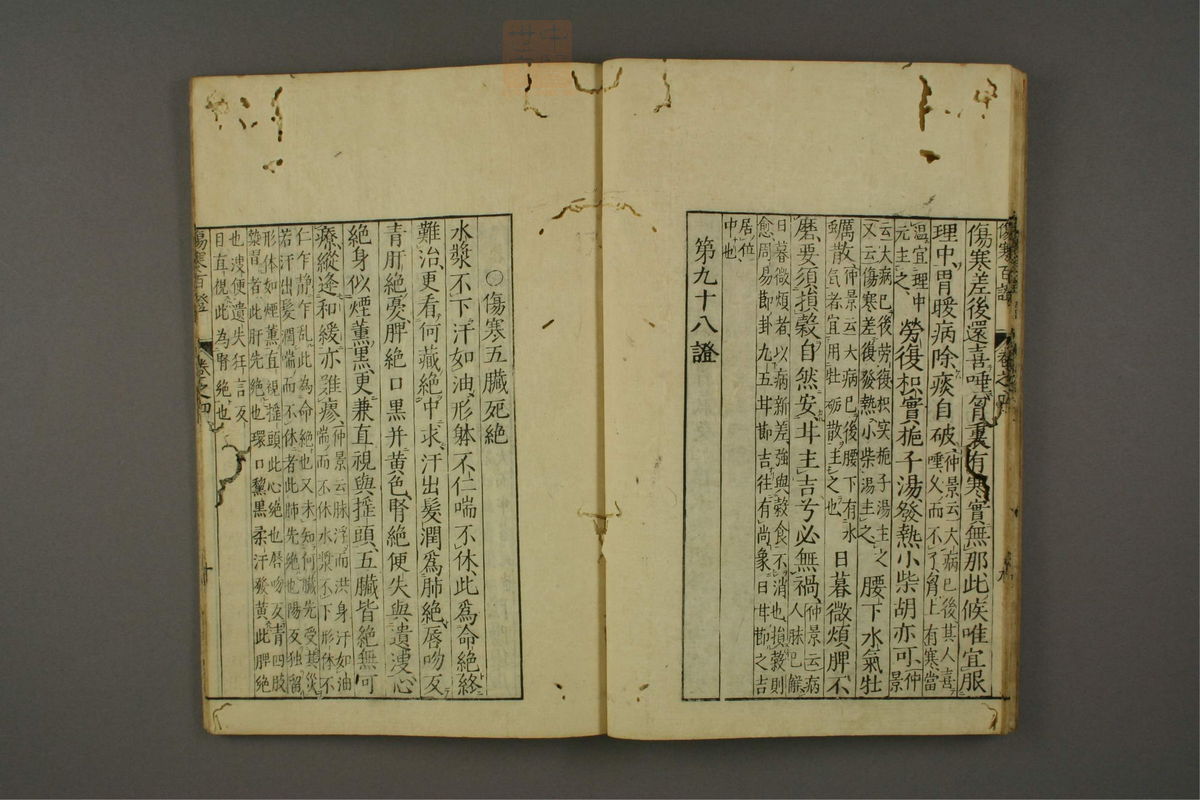 傷寒百證 卷之四 九
傷寒差後還喜唾胷裏有寒實無那此候唯宜服
理中胃暖病除痰自破仲景云大病已後其人喜
唾久而不了了胷上有寒當
溫宜理中
元主之勞復枳實梔子湯發熱小柴胡亦可仲景
云大病已後勞復枳实梔子湯主之
又云傷寒差後發熱小柴湯主之腰下水氣牡
蠣散仲景云大病已後腰下有水
氣者宜用牡砺散主之也日暮微煩脾不
磨要須損穀自然安甘主吉兮必無禍仲景云病
人脉已解
日暮微煩者以病新差強與穀食不消也損穀則
愈周易節卦九五甘節吉往有尚象曰甘節之吉
居位
中也
第九十八證
○傷寒五臟死絶
水漿不下汗如油形躰不仁喘不休此爲命絶終
難治更看何藏絶中求汗出髮潤爲肺絶唇吻反
青肝絶憂脾絶口黑并黄色腎絶便失與遺溲心
絶身似煙薰黑更兼直視與揺頭五臟皆絶無可
療縱逢和緩亦難瘳仲景云脉浮而洪身汗如油
喘而不休水漿不下形体不
仁乍静乍乱此為命絶也又未知何臓先受其災
若汗出髮潤喘而不休者此肺先絶也陽反独留
形体如煙薰直視揺頭此心絶也唇吻反青四肢
漐習者此肝先絶也環口黧黑柔汗發黄此脾絶
也溲便遺失狂言反
目直視此為腎絶也
傷寒百證 卷之四 十